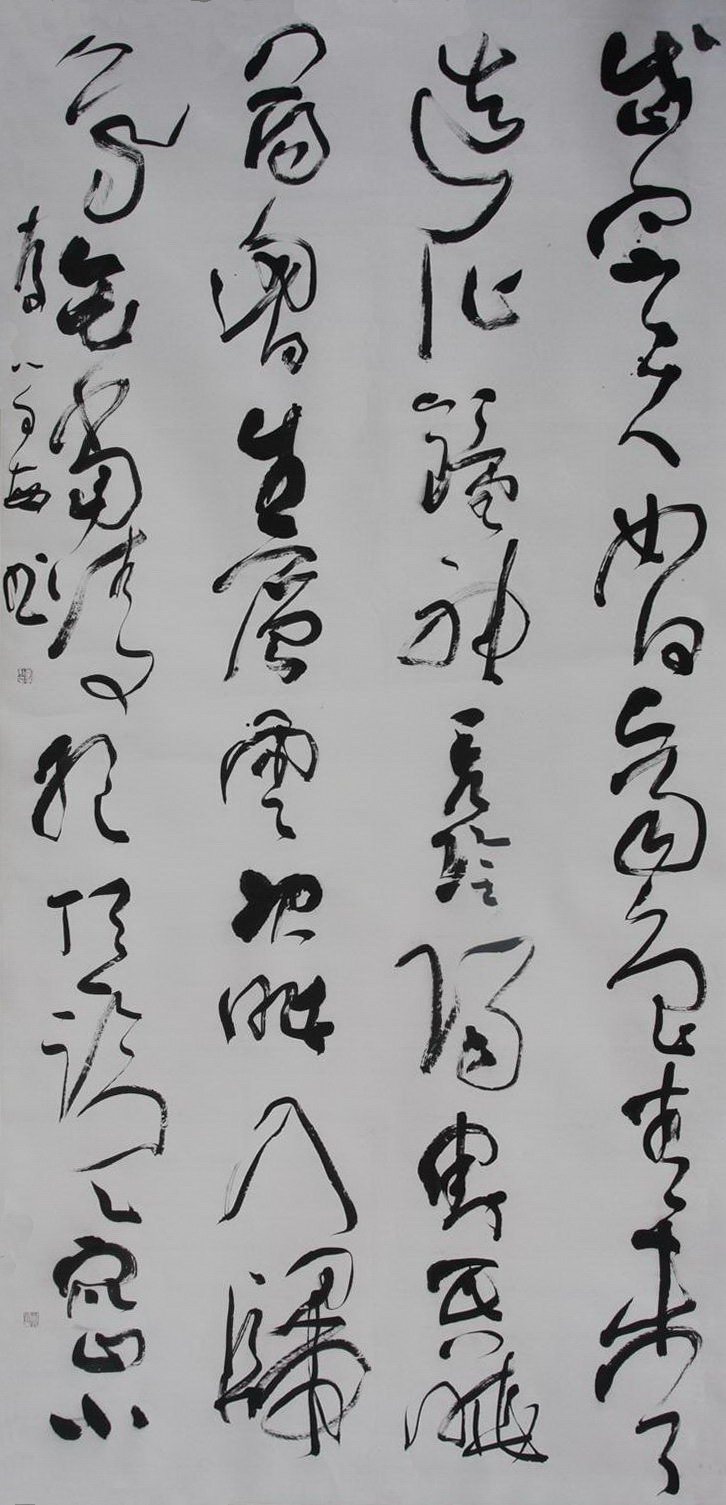 岱宗夫如何齊魯青未了
造化鍾神秀陰陽割昏曉
蕩胸生層雲決眥入歸
鳥會當凌絕頂一覽衆山小